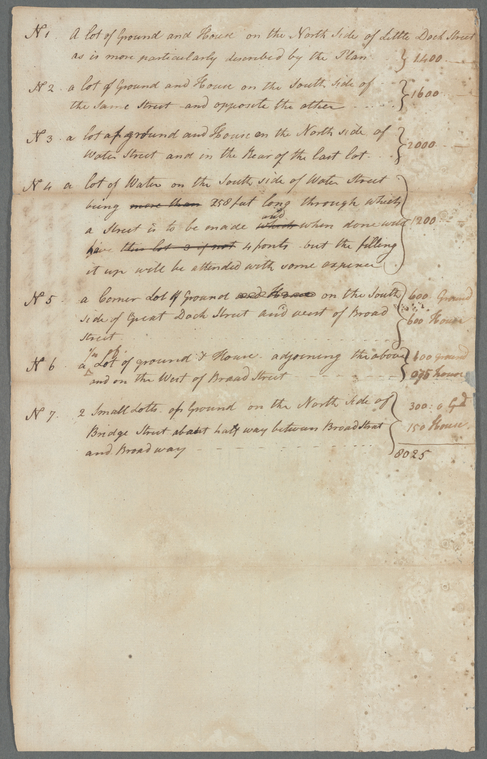 No 1 A lot of Ground and House on the North Side of Little Dock Street
as is more particularly described by the Plan } 1400
No 2 a lot of Ground and House on the South Side of
the Same Street and opposite the other } 1600
No 3 a lot of ground and House on the North side of
Water Street and in the Rear of the last lot } 2000
No 4 a lot of Water on the South side of Water Street
being more than 258 feet long through which
a Street is to be made which and when done will } 1200
have this lot 4 points but the filling
it up will be attended with some expence
No 5 a Corner Lot of Ground and House on the South } 600 Ground
side of Great Dock Street and west of Broad } 600 House
Street
No 6 a Lot of ground & House adjoining the above } 400 ground
and on the West of Broad Street } 075 house
No 7. 2 Small Lotts of Ground on the North Side of } 300: 0 Gd
Bridge Street about half way between Broad Street } 150 House
and Broadway
8025